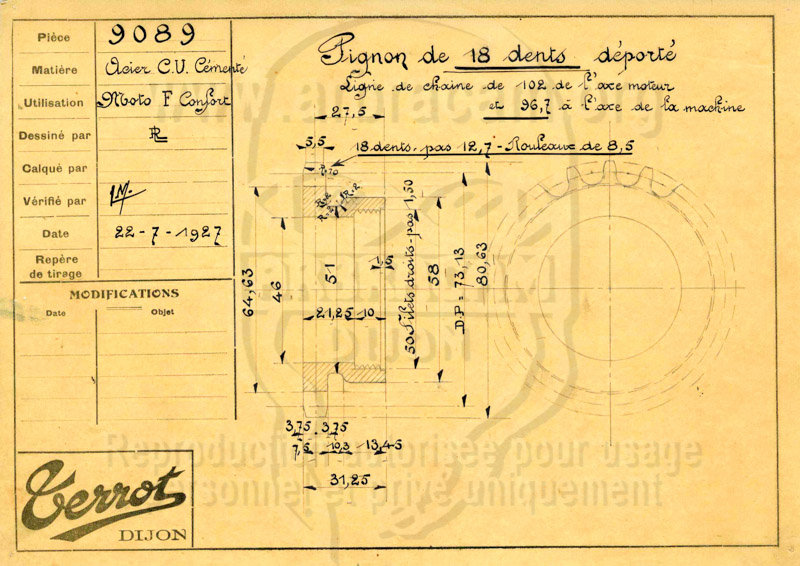 Pièce 9089
Matière Acier C.U. Cémenté
Utilisation Moto F Confort
Dessiné par
Calqué par
Vérifié par
Date 22-7-1927
Repère
de tirage
MODIFICATIONS
Date Objet
Pignon de 18 dents déporté
Ligne de chaine de 102 de l'axe moteur
et 96,7 à l'axe de la machine
27,5
5,5
18 dents - pas 12,7 - Rouleaux de 8,5
R.2
R.2
64,63
46
51
1,5
21,25
10
50 Filets droits - pas 1,50
58
D.P = 73,13
80,63
3,75
3,75
7,5
10,3
13,45
31,25
Terrot
DIJON
DIJON
Reproduction autorisée pour usage
personnel et privé uniquement